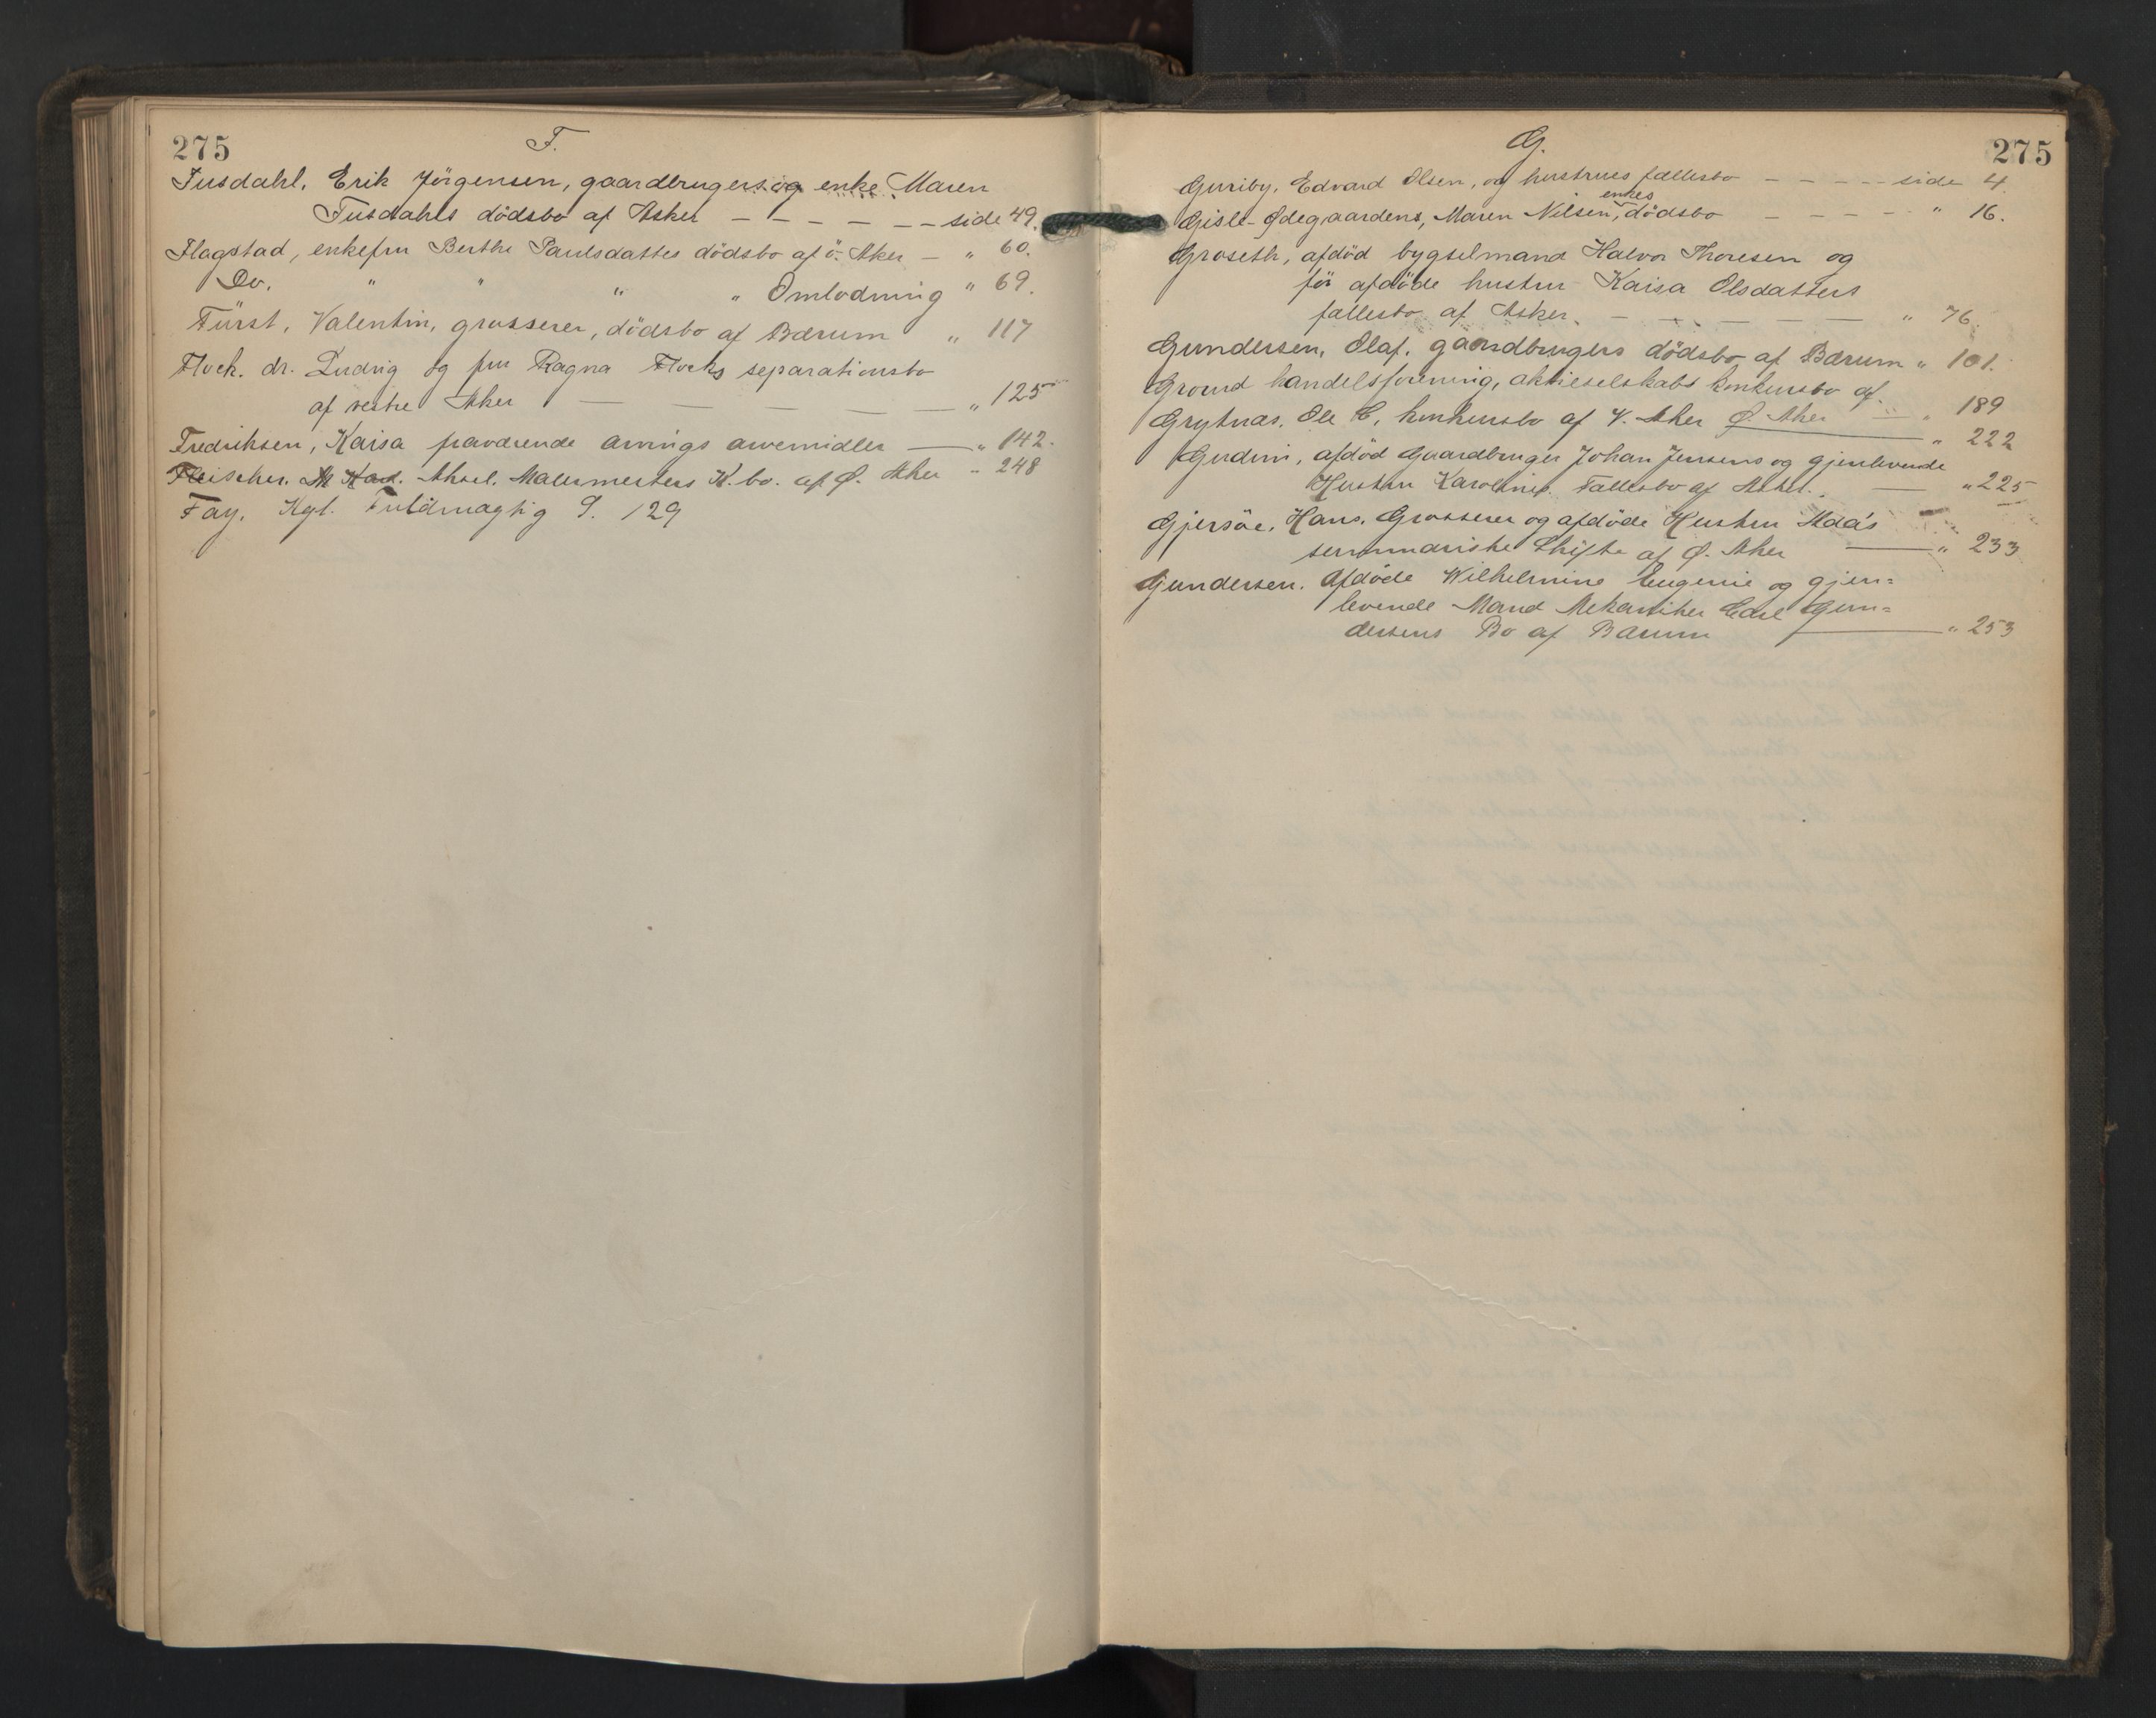 275
F.
Fusdahl, Erik Jörgensen, gaardbrugers og enke Maren
Fusdahls dödsbo af Asker – – – – – – side 49.
Flagstad, enkefru Berthe Paulsdatters dödsbo af ö. Aker – " 60.
Do. " " " " Omlodning " 69.
Fürst, Valentin, grosserer, dödsbo af Bærum " 117
Flock. dr. Ludvig og fru Ragna Flocks separationsbo
af vestre Aker — — — — — " 125
Fredriksen, Kaisa fraværende arvings arvemidler — " 142.
Fleischer. M Aksel. Malermesters K. bo. af Ø. Aker " 248
Fay, Kgl. Fuldmægtig S. 129
G.
275
Guriby, Edvard Olsen, og hustrues fællesbo – – – – side 4.
enkes
Gisle-Ødegaardens, Maren Nilsen, dödsbo – – – – " 16.
Groseth, afdöd bygselmand Halvor Thoresen og
för afdöde hustru Kaisa Olsdatters
fællesbo af Asker. – – – – – " 76.
Gundersen, Olaf, gaardbrugers dödsbo af Bærum " 101.
Grorud handelsforening, aktieselskabs konkursbo af
Ø. Aker — " 189
Grytnæs, Ole C, konkursbo af V. Aker — " 222
Gudim, afdöd Gaardbruger Johan Jensens og gjenlevende
Hustru Karoline Fællesbo af Asker. — " 225
Gjersöe, Hans, Grosserer og afdöde Hustru Ada's
summariske Skifte af Ø. Aker — " 233
Gundersen. Afdöde Wilhelmine Eugenie og gjen=
levende Mand Mekaniker Carl Gun=
dersens Bo af Bærum — " 253